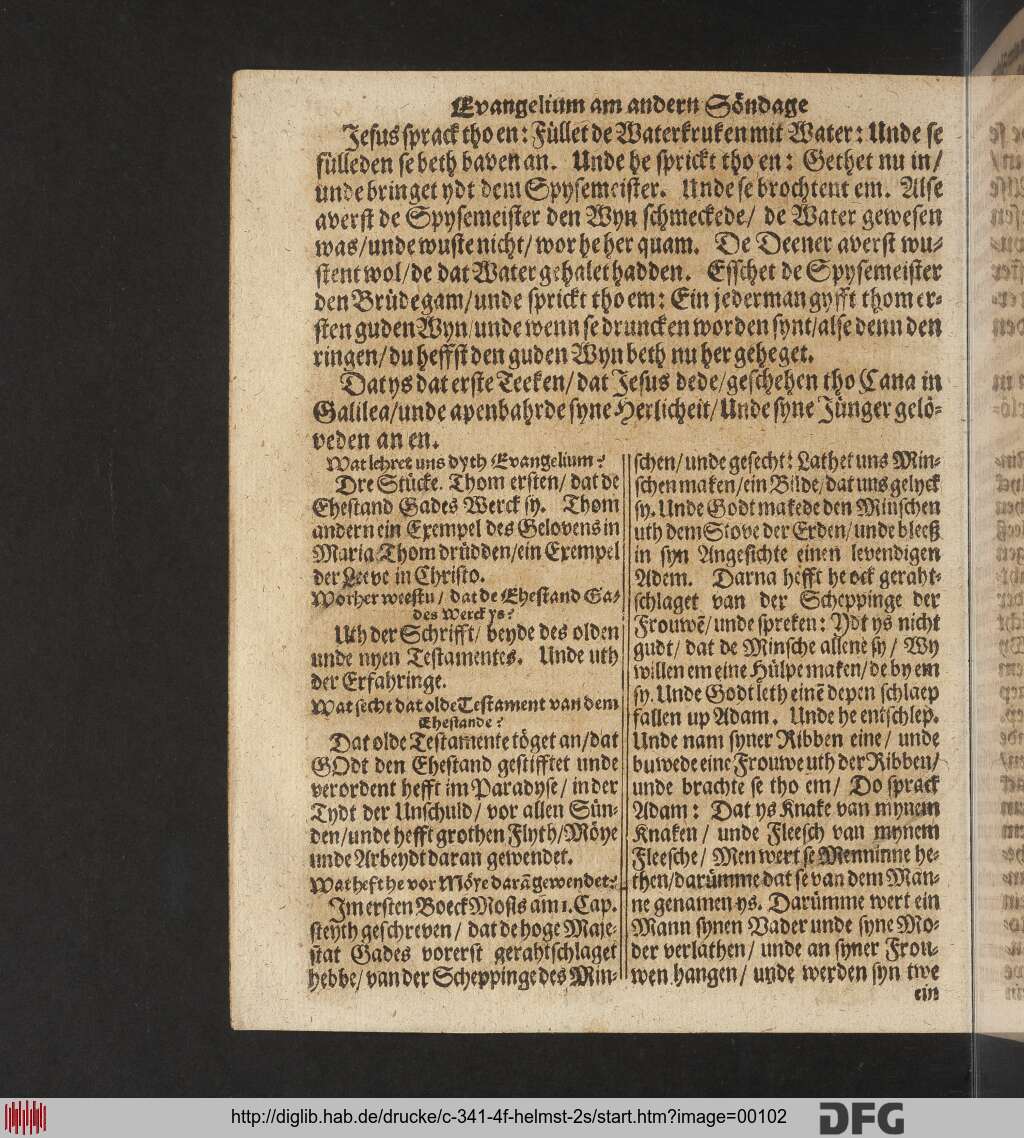 Evangelium am andern Söndage
Jesus sprack tho en: Füllet de Waterkruken mit Water: Unde se
fülleden se beth baven an. Unde he sprickt tho en: Gethet nu in/
unde bringet ydt dem Spysemeister. Unde se brochtent em. Alse
averst de Spysemeister den Wyn schmeckede/ de Water gewesen
was/unde wuste nicht/ wor he her quam. De Deener averst wu-
stent wol/de dat Water gehalet hadden. Esschet de Spysemeister
den Brüdegam/unde sprickt tho em: Ein jederman gyfft thom er-
sten guden Wyn/unde wenn se druncken worden synt/alse denn den
ringen/du heffst den guden Wyn beth nu her geheget.
Dat ys dat erste Teeken/ dat Jesus dede/geschehen tho Cana in
Galilea/unde apenbahrde syne Herlicheit/Unde syne Jünger gelö-
veden an en.
Wat lehret uns dyth Evangelium?
Dre Stücke. Thom ersten/ dat de
Ehestand Gades Werck sy. Thom
andern ein Exempel des Gelovens in
Maria. Thom drüdden/ein Exempel
der Leeve in Christo.
Worher weestu/ dat de Ehestand Ga-
des Werck ys?
Uth der Schrifft/ beyde des olden
unde nyen Testamentes. Unde uth
der Erfahringe.
Wat secht dat olde Testament van dem
Ehestande?
Dat olde Testamente töget an/dat
GOdt den Ehestand gestifftet unde
verordent hefft im Paradyse/ in der
Tydt der Unschuld/ vor allen Sün-
den/unde hefft grothen Flyth/Möye
unde Arbeydt daran gewendet.
Wat heft he vor Möye darā gewendet?
Im ersten Boeck Mosis am 1. Cap.
steyth geschreven/ dat de hoge Maje-
stat Gades vorerst gerahtschlaget
hebbe/ van der Scheppinge des Min-
schen/unde gesecht: Lathet uns Min-
schen maken/ein Bilde/dat uns gelyck
sy. Unde Godt makede den Minschen
uth dem Stove der Erden/unde bleeß
in syn Angesichte einen levendigen
Adem. Darna hefft he ock geraht-
schlaget van der Scheppinge der
Frouwē/unde spreken: Ydt ys nicht
gudt/ dat de Minsche allene sy/ Wy
willen em eine Hülpe maken/de by em
sy. Unde Godt leth einē depen schlaep
fallen up Adam. Unde he entschlep.
Unde nam syner Ribben eine/ unde
buwede eine Frouwe uth der Ribben/
unde brachte se tho em/ Do sprack
Adam: Dat ys Knake van mynem
Knaken/ unde Fleesch van mynem
Fleesche/ Men wert se Menninne he-
then/darümme dat se van dem Man-
ne genamen ys. Darümme wert ein
Mann synen Vader unde syne Mo-
der verlathen/ unde an syner Frou-
wen hangen/ unde werden syn twe
ein
http://diglib.hab.de/drucke/c-341-4f-helmst-2s/start.htm?image=00102
DFG